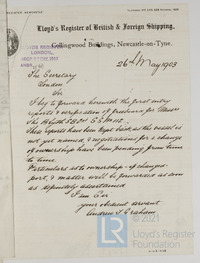 Lloyd's Register of British & Foreign Shipping,
Collingwood Buildings, Newcastle-on-Tyne.
LLOYDS REGISTER
LONDON,
26th May 1903
The Secretary
London
Sir
I beg to forward herewith the first entry
reports & verification of
The Blyth
These reports have been kept back as the vessel is
not yet named, & negotiations for a change
of ownership have been pending from time
to time
Particulars as to ownership - of changed
port, & master will be forwarded as soon
as definitely ascertained
I am Sir
your obedient servant
Andrew J Graham
© 2021
Lloyd's
Register
Foundation